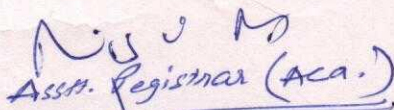 Asstt. Registrar (Aca.)